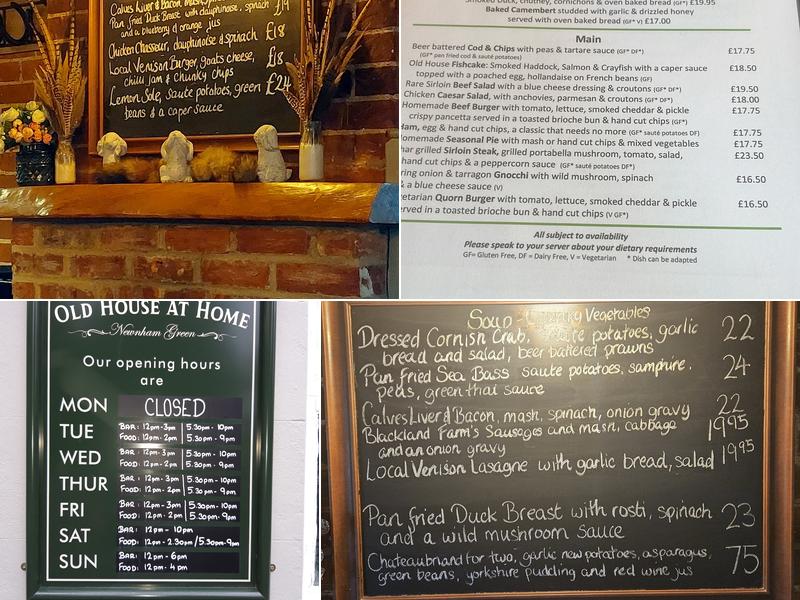 Calves Liver & Bacon, mash,
Pan fried Duck Breast with dauphinoise, spinach £19
and a blueberry & orange jus
Chicken Chasseur, dauphinoise & spinach £18
Local Venison Burger, goats cheese, £18
chilli jam & chunky chips
Lemon Sole, saute potatoes, green £24
beans & a caper sauce
Smoked Duck, chutney, cornichons & oven baked bread (GF*) £19.95
Baked Camembert studded with garlic & drizzled honey
served with oven baked bread (GF* V) £17.00
Main
Beer battered Cod & Chips with peas & tartare sauce (GF* DF*) £17.75
(GF* pan fried cod & sauté potatoes)
Old House Fishcake: Smoked Haddock, Salmon & Crayfish with a caper sauce £18.50
topped with a poached egg, hollandaise on French beans (GF)
Rare Sirloin Beef Salad with a blue cheese dressing & croutons (GF* DF*) £19.50
Chicken Caesar Salad, with anchovies, parmesan & croutons (GF* DF*) £18.00
Homemade Beef Burger with tomato, lettuce, smoked cheddar & pickle £17.75
crispy pancetta served in a toasted brioche bun & hand cut chips (GF*)
Ham, egg & hand cut chips, a classic that needs no more (GF* sauté potatoes DF) £17.75
omemade Seasonal Pie with mash or hand cut chips & mixed vegetables £17.75
har grilled Sirloin Steak, grilled portabella mushroom, tomato, salad, £23.50
hand cut chips & a peppercorn sauce (GF* sauté potatoes DF*)
ring onion & tarragon Gnocchi with wild mushroom, spinach £16.50
& a blue cheese sauce (V)
etarian Quorn Burger with tomato, lettuce, smoked cheddar & pickle £16.50
erved in a toasted brioche bun & hand cut chips (V GF*)
All subject to availability
Please speak to your server about your dietary requirements
GF= Gluten Free, DF = Dairy Free, V = Vegetarian * Dish can be adapted
OLD HOUSE AT HOME
Newnham Green
Our opening hours
are
MON CLOSED
TUE BAR: 12pm-3pm | 5.30pm-10pm
FOOD: 12pm-2pm | 5.30pm-9pm
WED BAR: 12pm-3pm | 5.30pm-10pm
FOOD: 12pm-2pm | 5.30pm-9pm
THUR BAR: 12pm-3pm | 5.30pm-10pm
FOOD: 12pm-2pm | 5.30pm-9pm
FRI BAR: 12pm-3pm | 5.30pm-10pm
FOOD: 12pm-2pm | 5.30pm-9pm
SAT BAR: 12pm-10pm
FOOD: 12pm-2.30pm / 5.30pm-9pm
SUN BAR: 12pm-6pm
FOOD: 12pm-4pm
Soup Vegetables
Dressed Cornish Crab, potatoes, garlic 22
bread and salad, beer battered prawns
Pan fried Sea Bass saute potatoes, samphire, 24
peas, green thai sauce
Calves Liver & Bacon, mash, spinach, onion gravy 22
Blackland Farm's Sausages and mash, cabbage 1995
and an onion gravy
Local Venison Lasagne with garlic bread, salad 1995
Pan fried Duck Breast with rosti, spinach 23
and a wild mushroom sauce
Chateaubriand for two, garlic new potatoes, asparagus, 75
green beans, yorkshire pudding and red wine jus